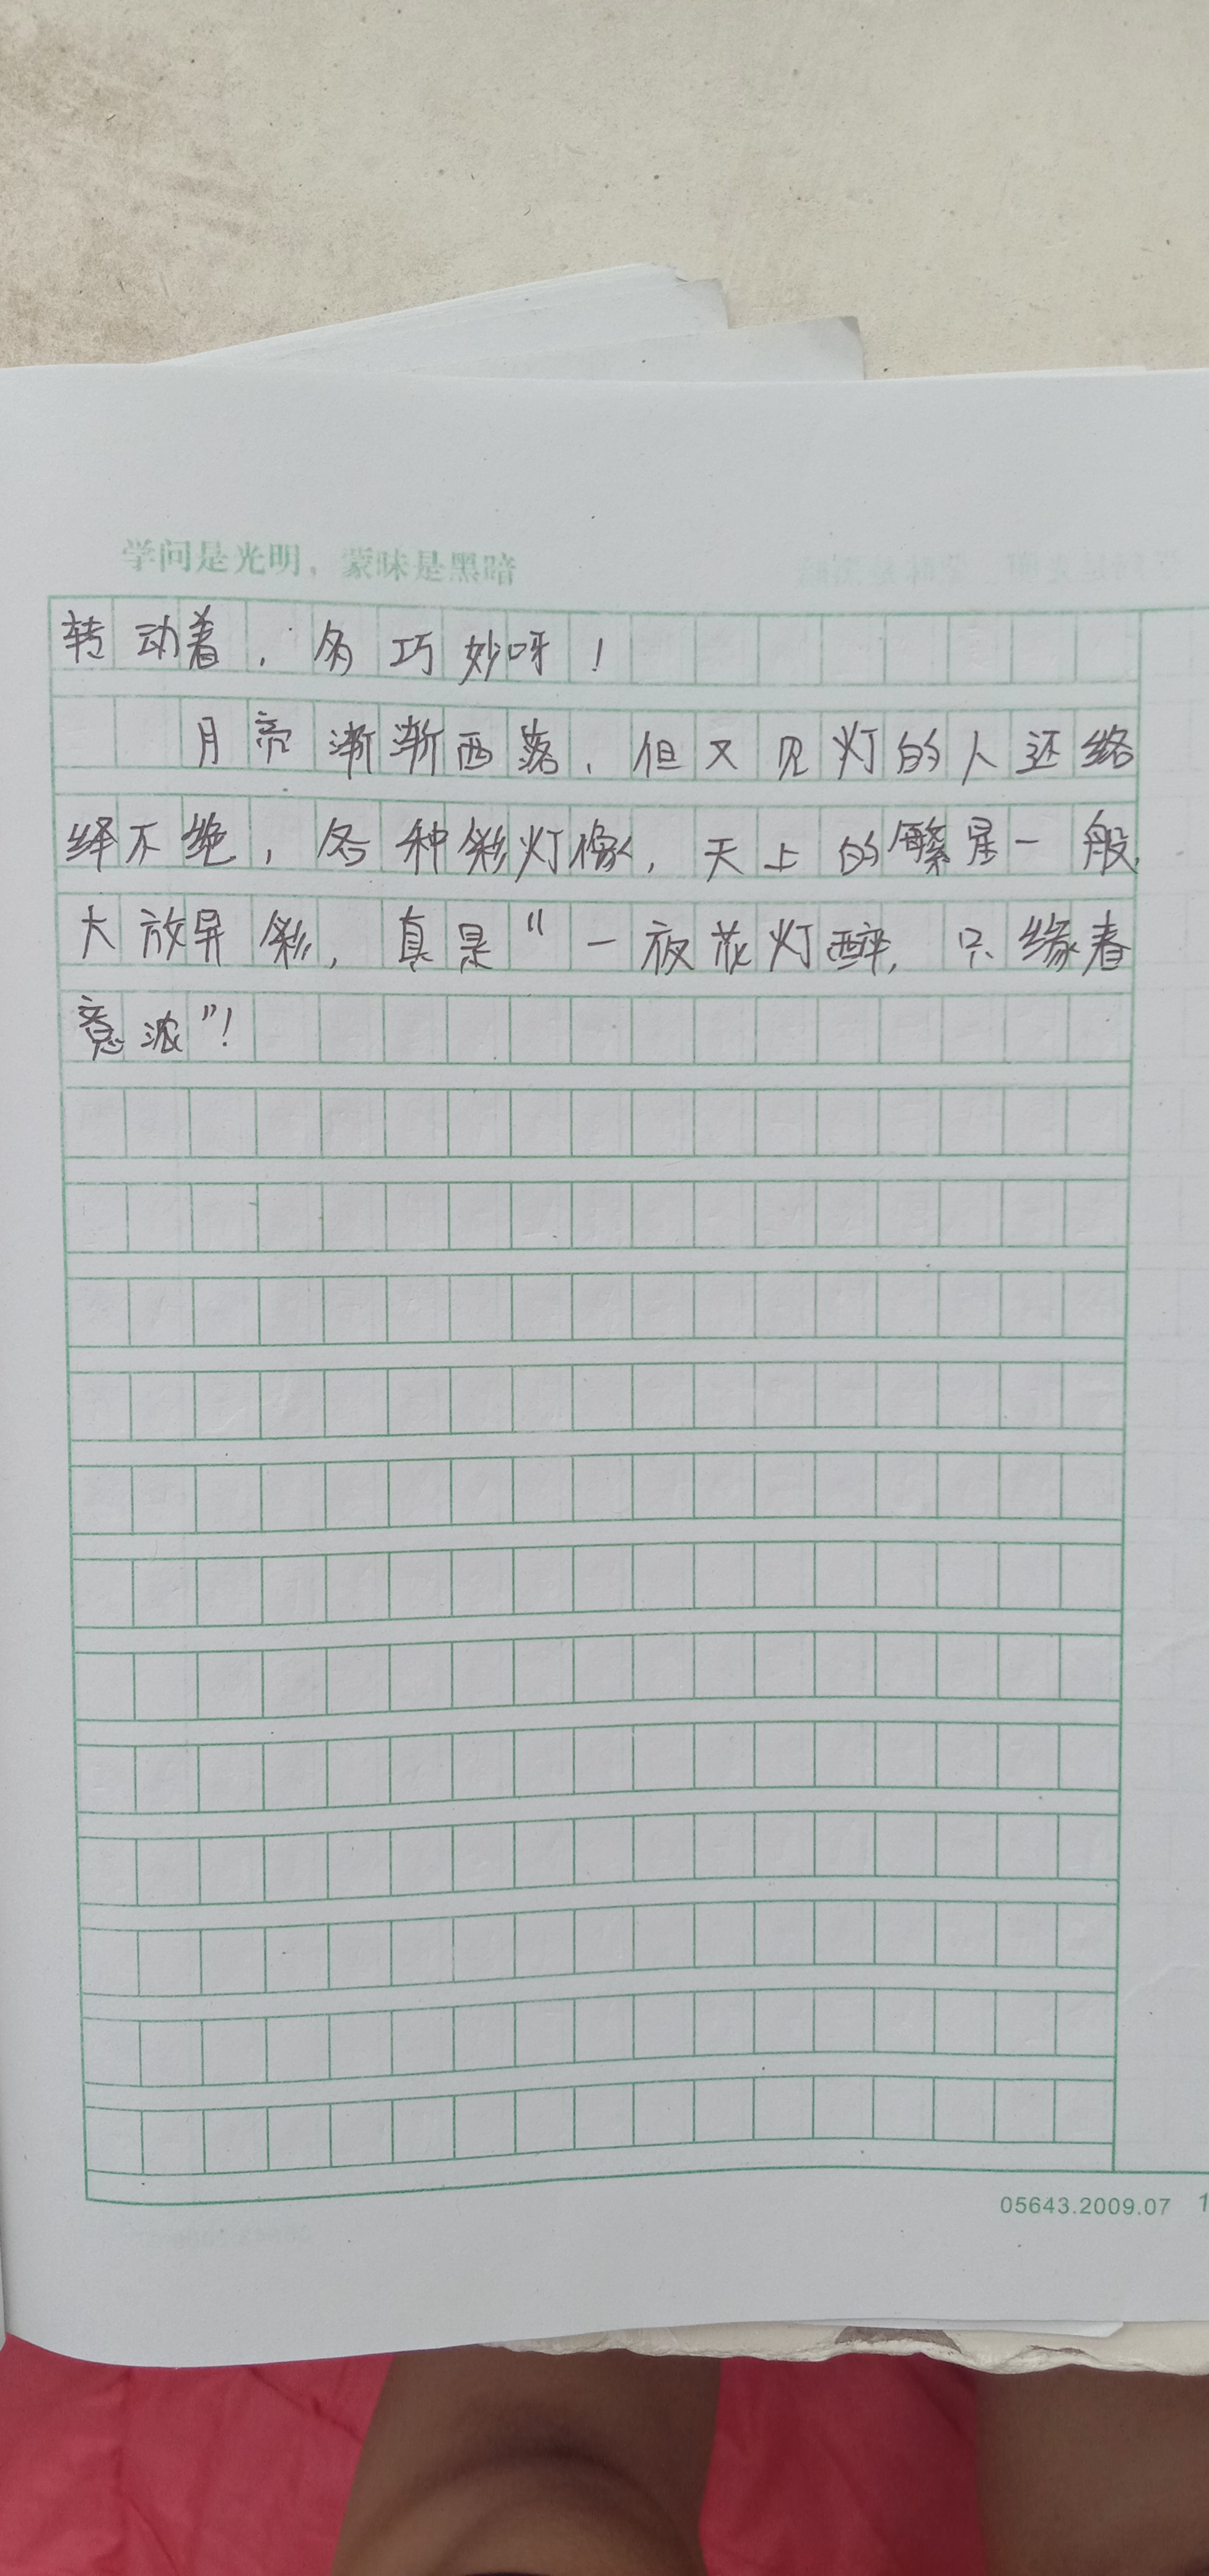 学问是光明，蒙昧是黑暗
转动着，多巧妙呀！
月亮渐渐西落，但又见灯的人还络
绎不绝，各种彩灯像，天上的繁星一般，
大放异彩，真是“一夜花灯醉，只缘春
意浓”！
05643.2009.07